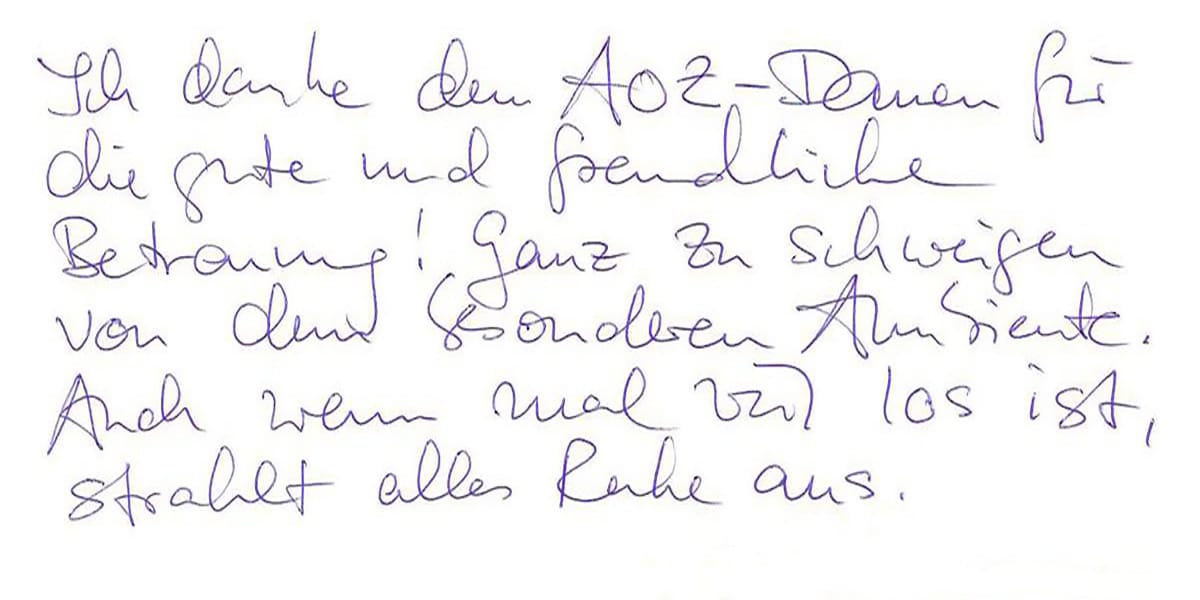 Ich danke den AOZ-Damen für
die gute und freundliche
Betreuung! Ganz zu schweigen
von dem besonderen Ambiente.
Auch wenn mal viel los ist,
strahlt alles Ruhe aus.